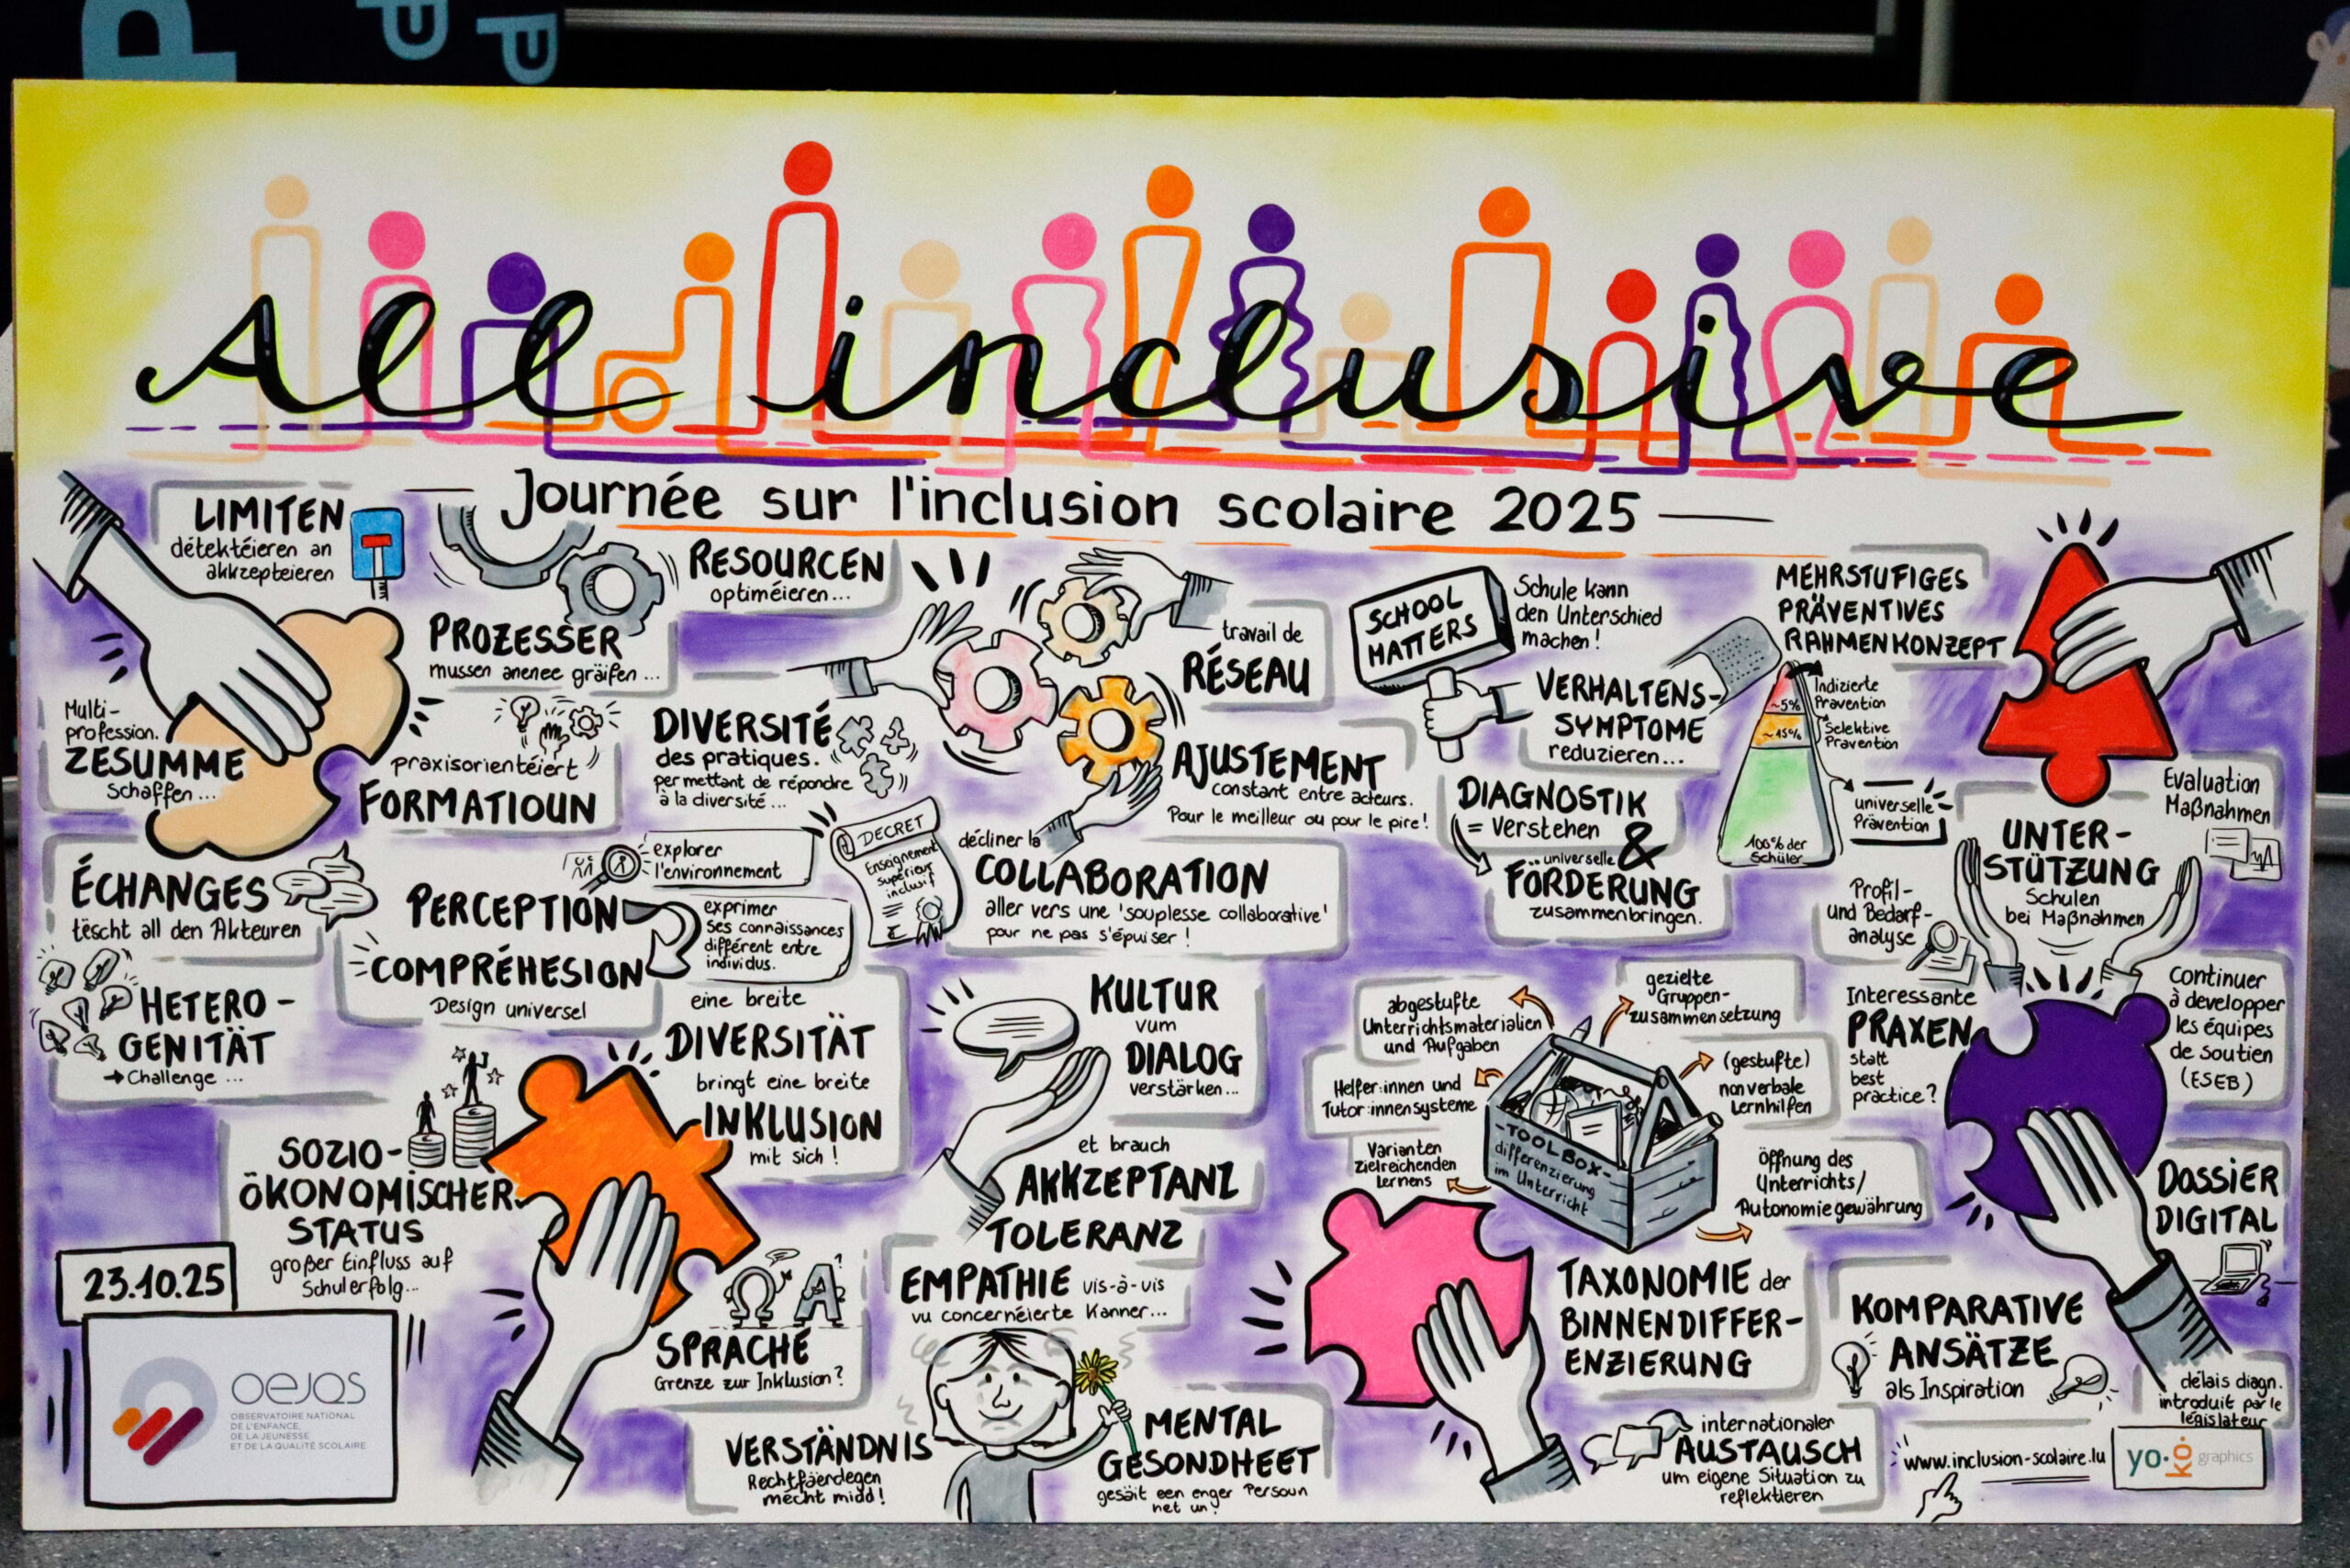 All inclusive
Journée sur l'inclusion scolaire 2025
LIMITEN
détektéieren an
akkzepteieren
PROZESSER
mussen anenee gräifen...
RESOURCEN
optiméieren...
Multi-
profession.
ZESUMME
schaffen...
praxisorientéiert
FORMATIOUN
DIVERSITÉ
des pratiques.
permettant de répondre
à la diversité...
travail de
RÉSEAU
AJUSTEMENT
constant entre acteurs.
Pour le meilleur ou pour le pire!
DECRET
Enseignement
supérieur
inclusif
décliner la
COLLABORATION
aller vers une 'souplesse collaborative'
pour ne pas s'épuiser!
ÉCHANGES
tëscht all den Akteuren
PERCEPTION
explorer
l'environnement
exprimer
ses connaissances
différent entre
individus.
COMPRÉHESION
Design universel
HETERO-
GENITÄT
→ Challenge...
eine breite
DIVERSITÄT
bringt eine breite
INKLUSION
mit sich!
SOZIO-
ÖKONOMISCHER
STATUS
großer Einfluss auf
Schulerfolg...
SPRACHE
Grenze zur Inklusion?
Ω A ?
KULTUR
vum
DIALOG
verstärken...
et brauch
AKKZEPTANZ
TOLERANZ
EMPATHIE vis-à-vis
vu concernéierte Kanner...
VERSTÄNDNIS
Rechtfäerdegen
mécht midd!
MENTAL
GESONDHEET
gesäit een enger Persoun
net un!
SCHOOL
MATTERS
Schule kann
den Unterschied
machen!
VERHALTENS-
SYMPTOME
reduzieren...
DIAGNOSTIK
= Verstehen
&
universelle
FÖRDERUNG
zusammenbringen.
MEHRSTUFIGES
PRÄVENTIVES
RAHMENKONZEPT
~5%
Indizierte
Prävention
~15%
Selektive
Prävention
universelle
Prävention
100% der
Schüler
Evaluation
Maßnahmen
UNTER-
STÜTZUNG
Schulen
bei Maßnahmen
Profil-
und Bedarf-
analyse
Interessante
PRAXEN
statt
best
practice?
continuer
à developper
les équipes
de soutien
(ESEB)
abgestufte
Unterrichtsmaterialien
und Aufgaben
gezielte
Gruppen-
zusammensetzung
Helfer:innen und
Tutor:innensysteme
(gestufte)
nonverbale
Lernhilfen
Varianten
zielreichenden
Lernens
Öffnung des
Unterrichts/
Autonomiegewährung
-TOOLBOX-
differenzierung
im Unterricht
TAXONOMIE der
BINNENDIFFER-
ENZIERUNG
DOSSIER
DIGITAL
KOMPARATIVE
ANSÄTZE
als Inspiration
délais diagn.
introduit par le
législateur
internationaler
AUSTAUSCH
um eigene Situation zu
reflektieren
www.inclusion-scolaire.lu
yo·kō· graphics
23.10.25
oejqs
OBSERVATOIRE NATIONAL
DE L'ENFANCE,
DE LA JEUNESSE
ET DE LA QUALITÉ SCOLAIRE